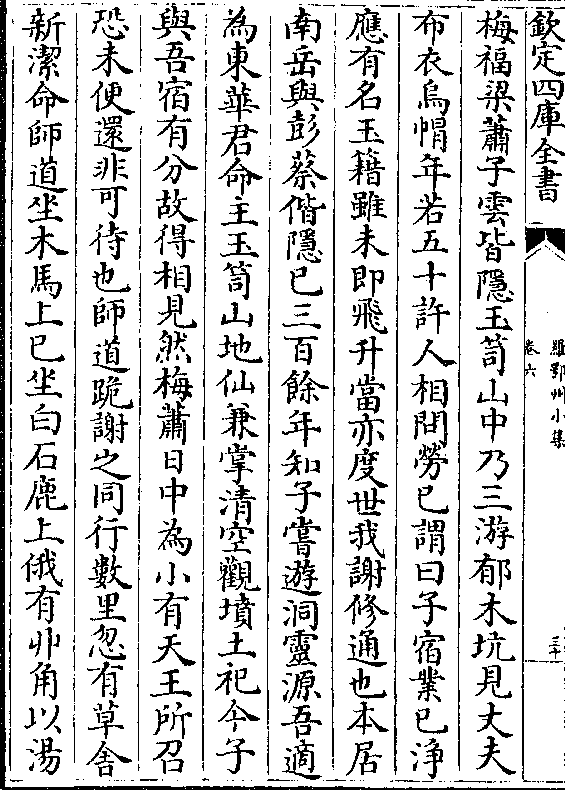 欽定四庫全書
羅鄂州小集
卷六
三十
梅福梁蕭子雲皆隱玉笥山中乃三游郁木坑見丈夫
布衣烏帽年若五十許人相問勞已謂曰子宿業已淨
應有名玉籍雖未即飛升當亦度世我謝修通也本居
南岳與彭蔡偕隱已三百餘年知子嘗遊洞靈源吾適
為東華君命主玉笥山地仙兼掌清空觀墳土祀今子
與吾宿有分故得相見然梅蕭日中為小有天王所召
恐未便還非可待也師道跪謝之同行數里忽有草舍
新潔命師道坐木馬上已坐白石鹿上俄有丱角以湯